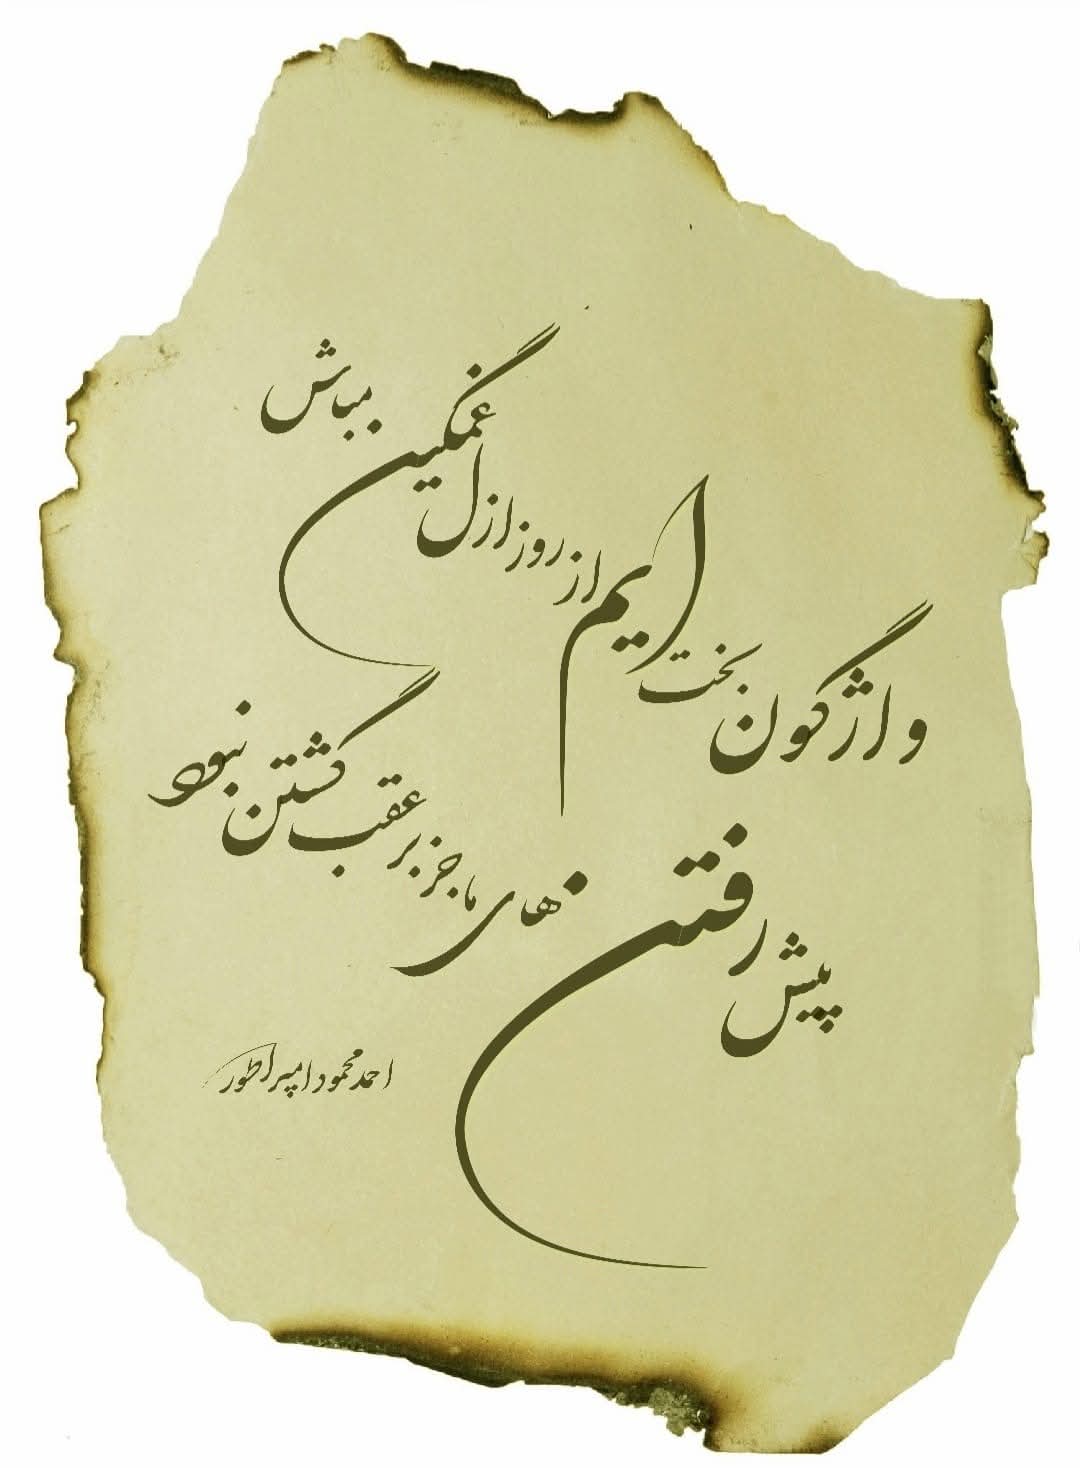 واژگون بخت ایم از روز ازل غمگین مباش
پیش رفتن های ما جز بر عقب گشتن نبود
احمد محمود امپراطور